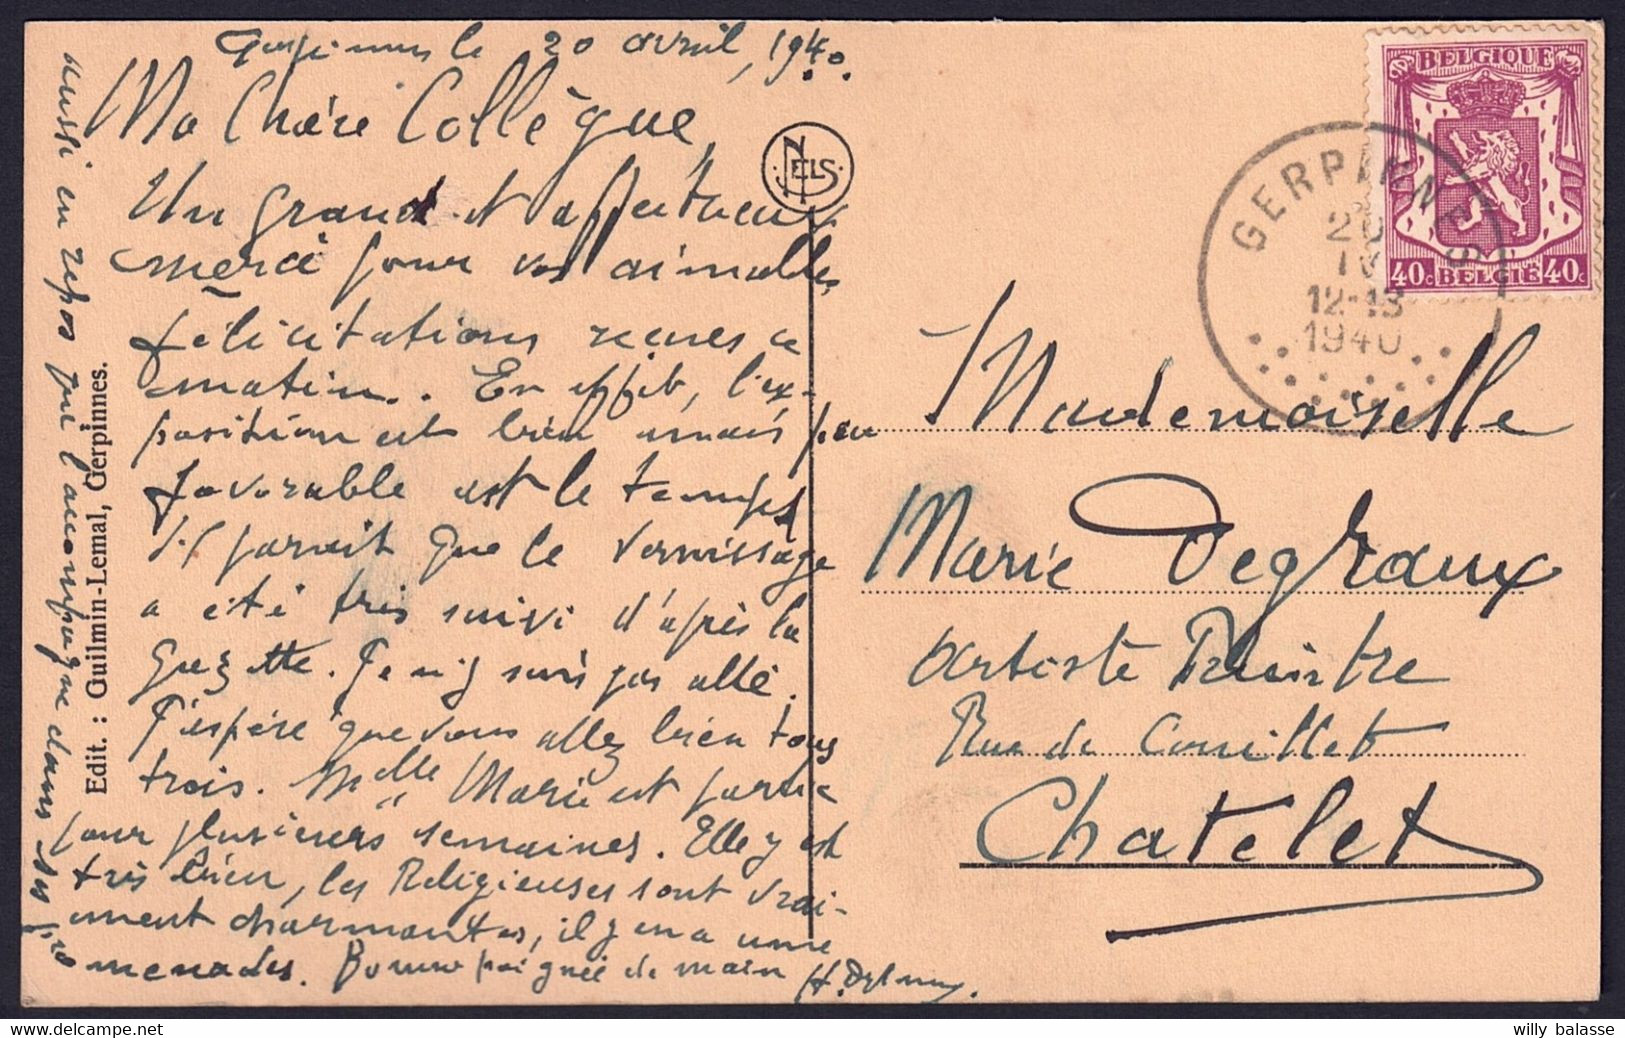 Gerpinnes le 20 avril, 1940.
Ma Chère Collègue
Un grand et affectueux
merci pour vos aimables
félicitations reçues ce
matin. En effet, l'ex-
position est bien mais peu
favorable est le temps
Il parait que le vernissage
a été très suivi d'après la
gazette. Je n'y suis pas allé.
J'espère que vous allez bien tous
trois. Melle Marie est partie
pour plusieurs semaines. Elle y est
très bien, les Religieuses sont vrai-
ment charmantes, il y en a une
aussi en repos que l'accompagne dans ses pro
menades. Bonne poignée de main
NELS
Edit. : Guilmin-Lemal, Gerpinnes.
BELGIQUE
40c BELGIË 40c
GERPINNES
20
IV
12-13
1940
Mademoiselle
Marie Degraux
Artiste Peintre
Rue de Couillet
Chatelet
willy balasse